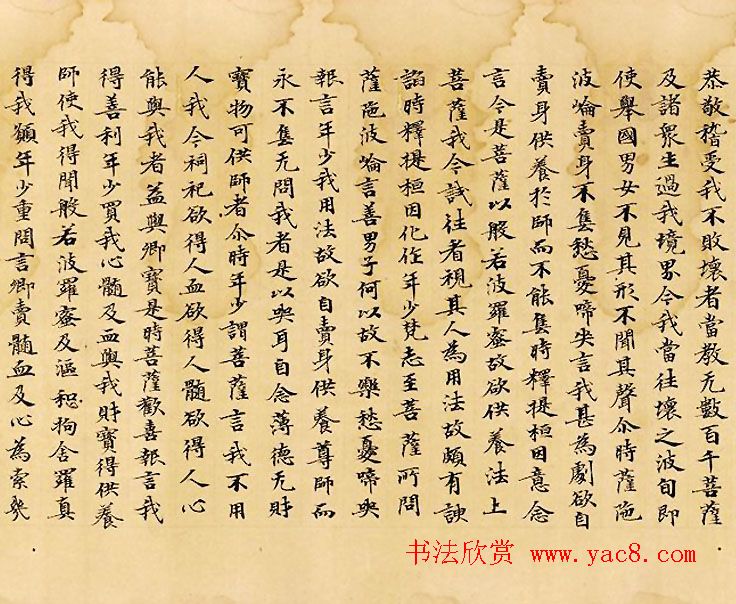 恭敬稽受我不敗壞者當教无數百千菩薩
及諸衆生過我境界令我當往壞之波旬即
使舉國男女不見其形不聞其聲尒時薩陁
波崘賣身不售愁憂啼哭言我甚為劇欲自
賣身供養於師而不能售時釋提桓因意念
言今是菩薩以般若波羅蜜故欲供養法上
菩薩我今試往者視其人為用法故頗有諛
諂時釋提桓因化作年少梵志至菩薩所問
薩陁波崘言善男子何以故不樂愁憂啼哭
報言年少我用法故欲自賣身供養尊師而
永不售无問我者是以哭耳自念薄德无財
寶物可供師者尒時年少謂菩薩言我不用
人我今祠祀欲得人血欲得人髓欲得人心
能與我者益與卿寶是時菩薩歡喜報言我
得善利年少買我心髓及血與我財寶得供養
師使我得聞般若波羅蜜及漚惒拘舍羅真
得我願年少重問言卿賣髓血及心為索幾
书法欣赏 www.yac8.com